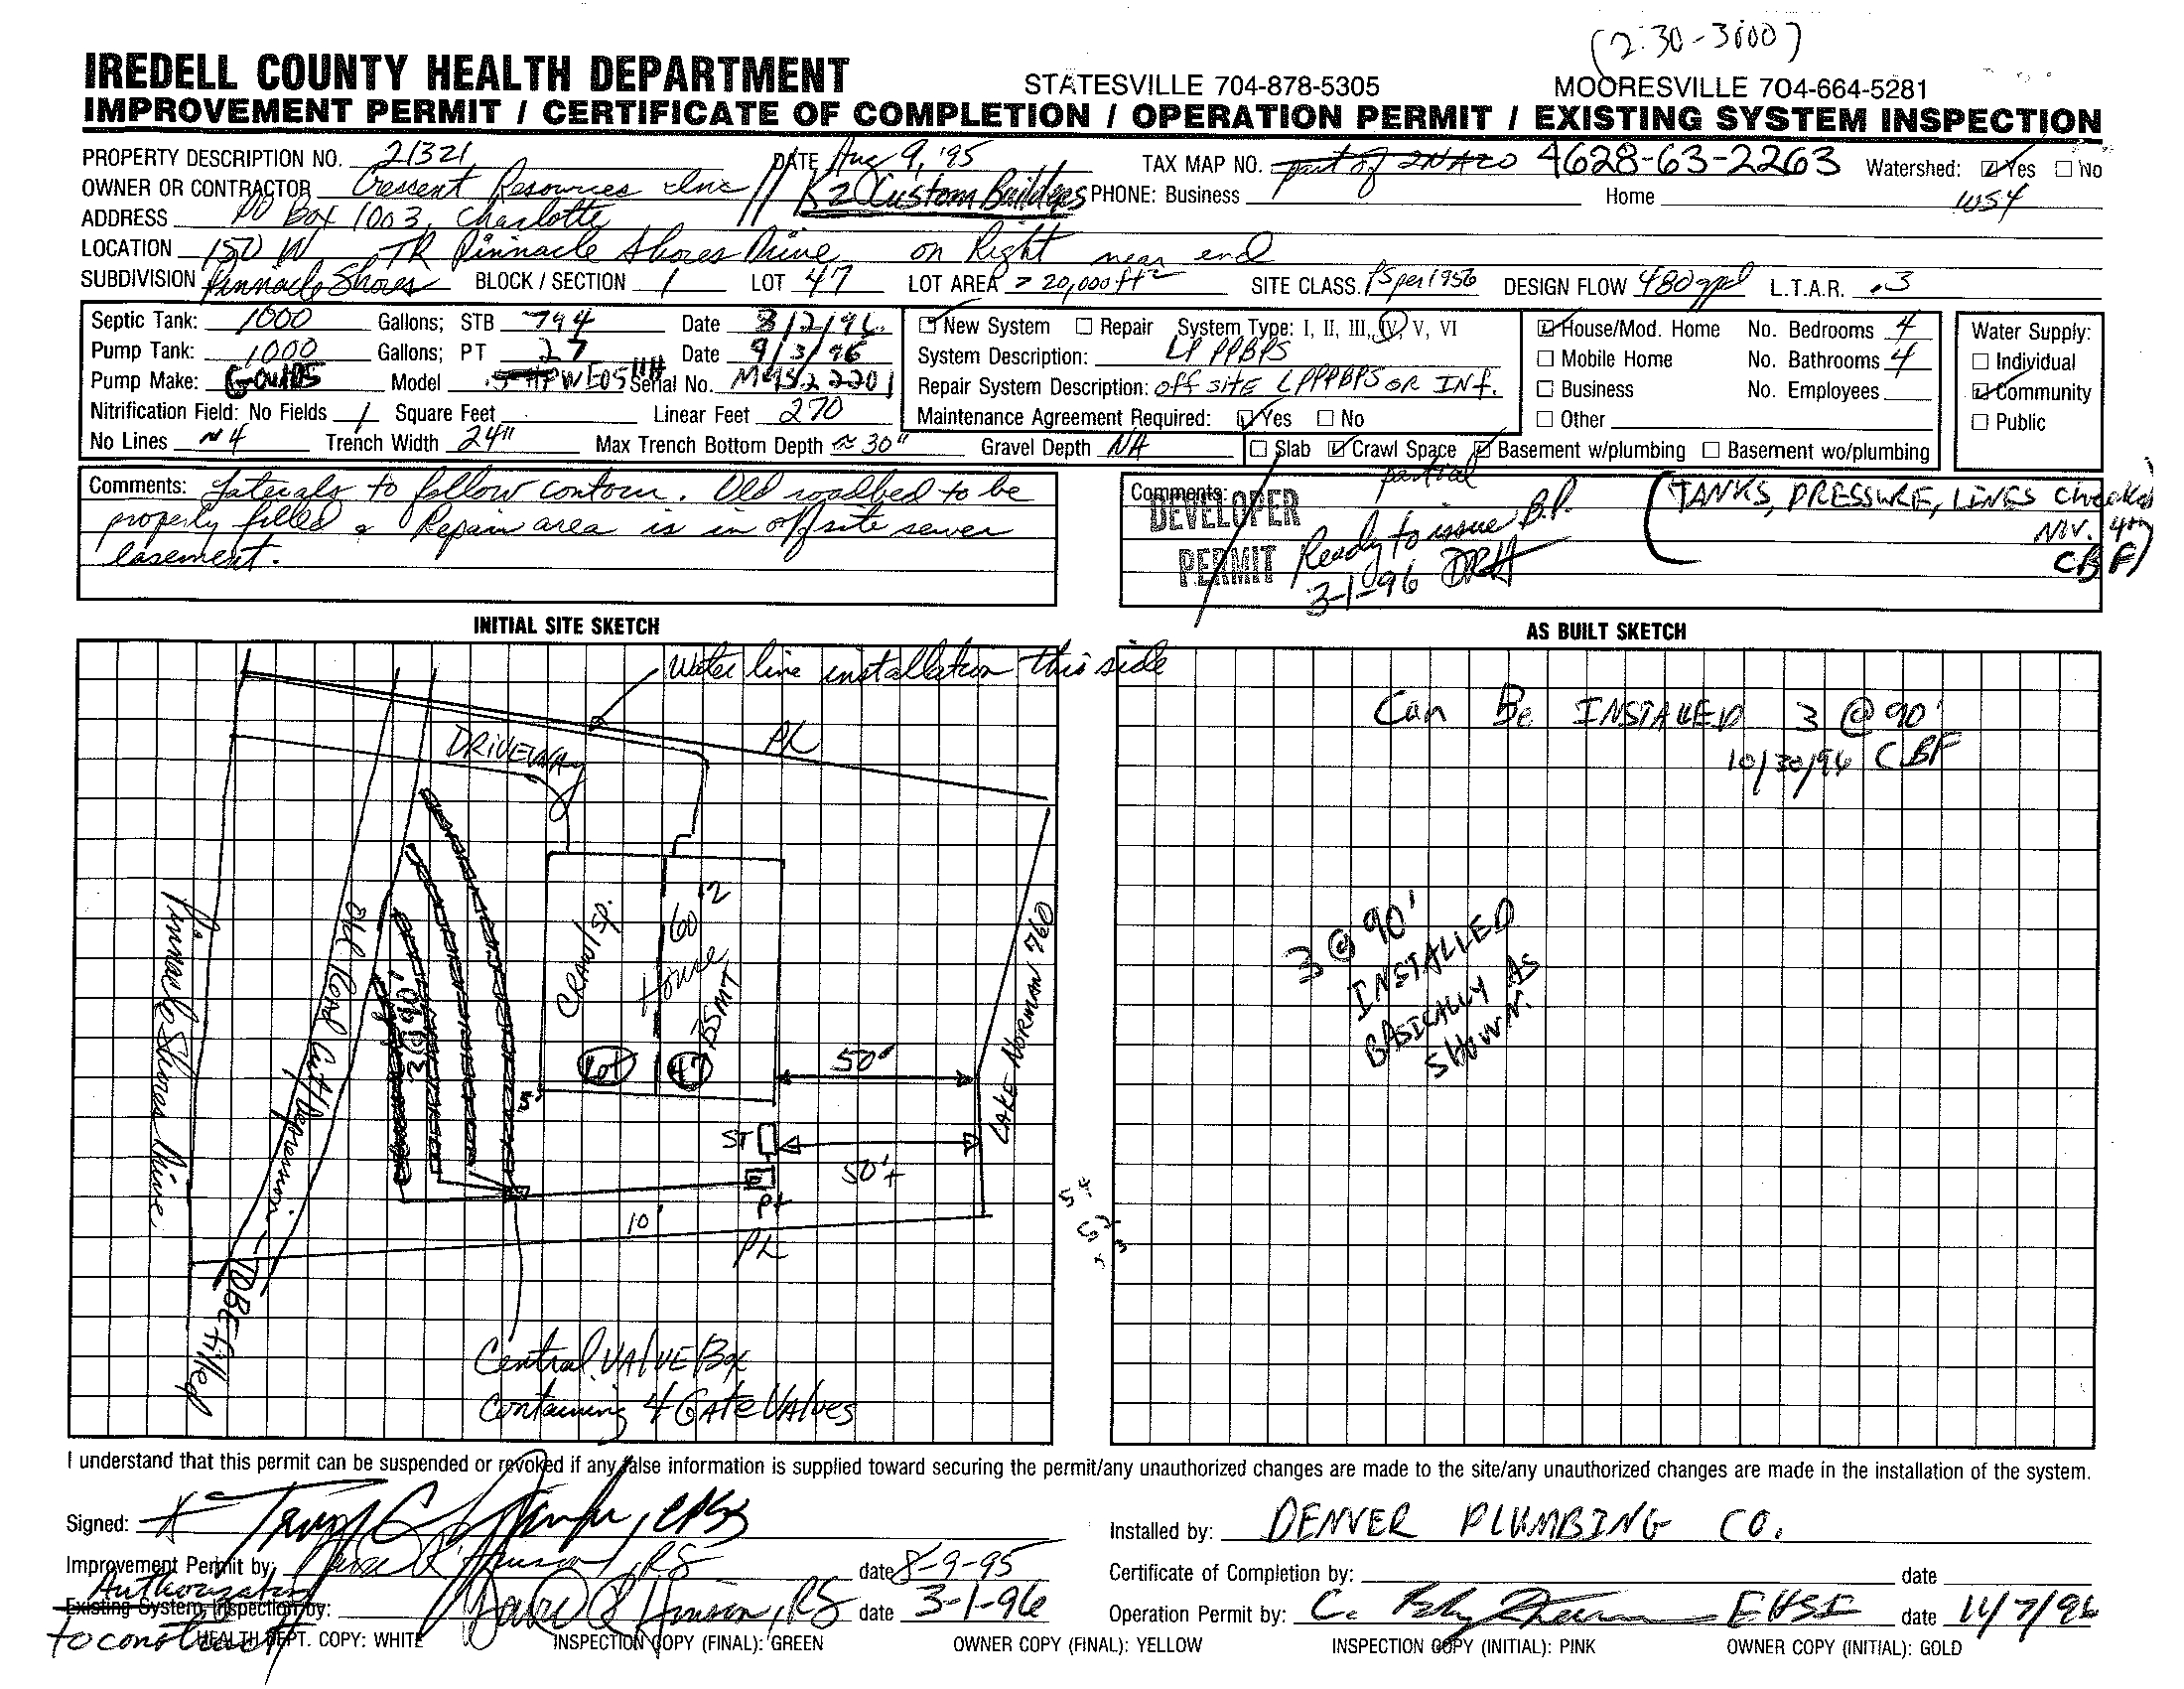 (2:30-3:00)
IREDELL COUNTY HEALTH DEPARTMENT STATESVILLE 704-878-5305 MOORESVILLE 704-664-5281
IMPROVEMENT PERMIT / CERTIFICATE OF COMPLETION / OPERATION PERMIT / EXISTING SYSTEM INSPECTION
PROPERTY DESCRIPTION NO. 21321 DATE Aug 9, '95 TAX MAP NO. part of 4628-63-2263 Watershed: Yes No
OWNER OR CONTRACTOR Crescent Resources Inc // K2 Custom Builders PHONE: Business Home WS4
ADDRESS PO Box 1003, Charlotte
LOCATION 150 W TR Pinnacle Shores Drive on Right near end
SUBDIVISION Pinnacle Shores BLOCK / SECTION 1 LOT 47 LOT AREA > 20,000 ft² SITE CLASS. PS per 1956 DESIGN FLOW 480 gpd L.T.A.R. .3
Septic Tank: 1000 Gallons; STB 794 Date 8/2/96
Pump Tank: 1000 Gallons; PT 27 Date 9/3/96
Pump Make: Goulds Model WE05 Serial No.
Nitrification Field: No Fields 1 Square Feet Linear Feet 270
No Lines ≈4 Trench Width 24" Max Trench Bottom Depth ≈ 30" Gravel Depth NA
New System Repair System Type: I, II, III, IV, V, VI
System Description: LP PPBPS
Repair System Description: off site LPPPBPS OR INf.
Maintenance Agreement Required: Yes No
Slab Crawl Space Basement w/plumbing Basement wo/plumbing
partial
House/Mod. Home No. Bedrooms 4
Mobile Home No. Bathrooms 4
Business No. Employees
Other
Water Supply:
Individual
Community
Public
Comments: Laterals to follow contour. Old roadbed to be
properly filled. Repair area is in offsite sewer
easement.
Comments:
DEVELOPER
PERMIT
Ready to issue B.P.
3-1-96 DRH
(TANKS, PRESSURE, LINES checked
NOV. 4th
CBF)
INITIAL SITE SKETCH
Water line installation this side
DRIVEWAY
PL
Pinnacle Shores Drive
Old Road Cut/Depression - TO BE filled
3@90'
CRAWL SP.
60'
House
BSMT
Lot
47
5'
50'
LAKE NORMAN 760
ST
50'+
Pt
10'
PL
Central VALVE Box
Containing 4 GATE VALVES
AS BUILT SKETCH
Can Be INSTALLED 3 @ 90'
10/30/96 CBF
3 @ 90'
INSTALLED
BASICALLY AS
SHOWN.
I understand that this permit can be suspended or revoked if any false information is supplied toward securing the permit/any unauthorized changes are made to the site/any unauthorized changes are made in the installation of the system.
Signed: X
Improvement Permit by: RS date 8-9-95
Authorization
Existing System Inspection by: RS date 3-1-96
to construct
Installed by: DENVER PLUMBING CO.
Certificate of Completion by: date
Operation Permit by: C. EHSI date 11/7/96
HEALTH DEPT. COPY: WHITE INSPECTION COPY (FINAL): GREEN OWNER COPY (FINAL): YELLOW INSPECTION COPY (INITIAL): PINK OWNER COPY (INITIAL): GOLD